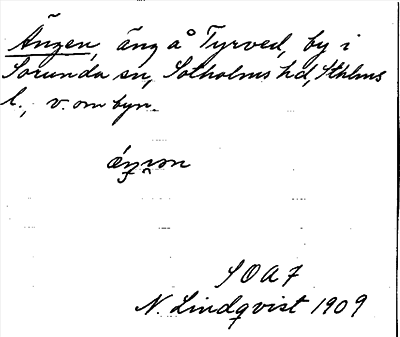 Ängen, äng å Tyrved, by i
Sorunda sn, Sotholms hd, Sthlms
l., v. om byn.
S O A F
N. Lindqvist 1909